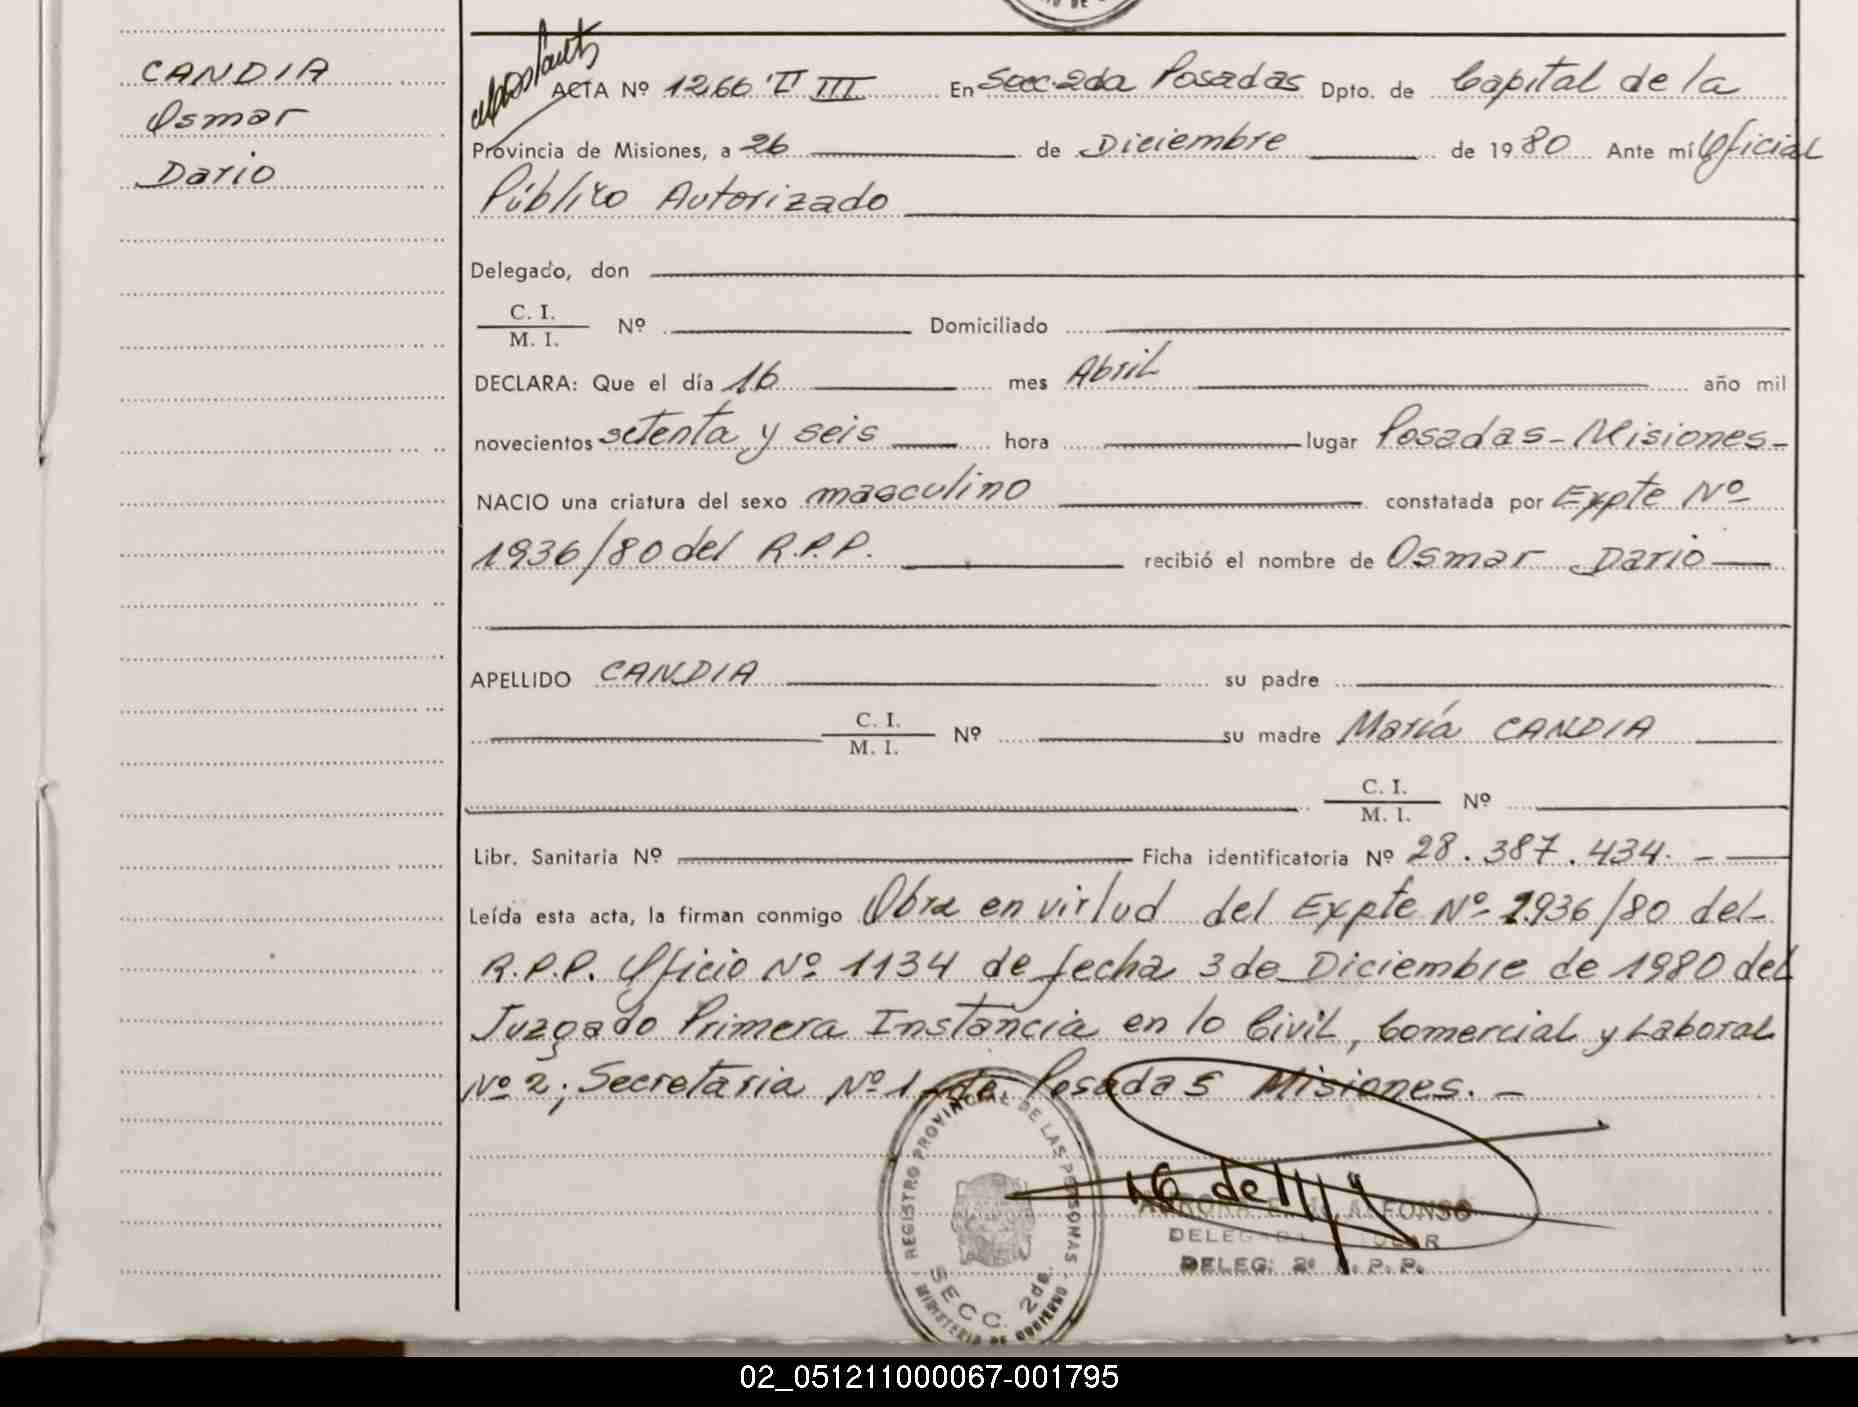 CANDIA
Osmar
Dario
ACTA Nº 1266 T III En Secc. 2da Posadas Dpto. de Capital de la
Provincia de Misiones, a 26 de Diciembre de 1980 Ante mí Oficial
Público Autorizado
Delegado, don
C. I.
M. I. Nº Domiciliado
DECLARA: Que el día 16 mes Abril año mil
novecientos setenta y seis hora lugar Posadas - Misiones -
NACIO una criatura del sexo masculino constatada por Expte Nº
1936/80 del R.P.P. recibió el nombre de Osmar Dario
APELLIDO CANDIA su padre
C. I.
M. I. Nº su madre María CANDIA
C. I.
M. I. Nº
Libr. Sanitaria Nº Ficha identificatoria Nº 28.387.434. -
Leída esta acta, la firman conmigo Obra en virtud del Expte Nº 1936/80 del
R.P.P. Oficio Nº 1134 de fecha 3 de Diciembre de 1980 del
Juzgado Primera Instancia en lo Civil, Comercial y Laboral
Nº 2; Secretaria Nº 1 de Posadas Misiones. -
REGISTRO PROVINCIAL DE LAS PERSONAS
SECC. 2da.
MINISTERIO DE GOBIERNO
ALFONSO
DELEG. 2ª R. P. P.
02_051211000067-001795